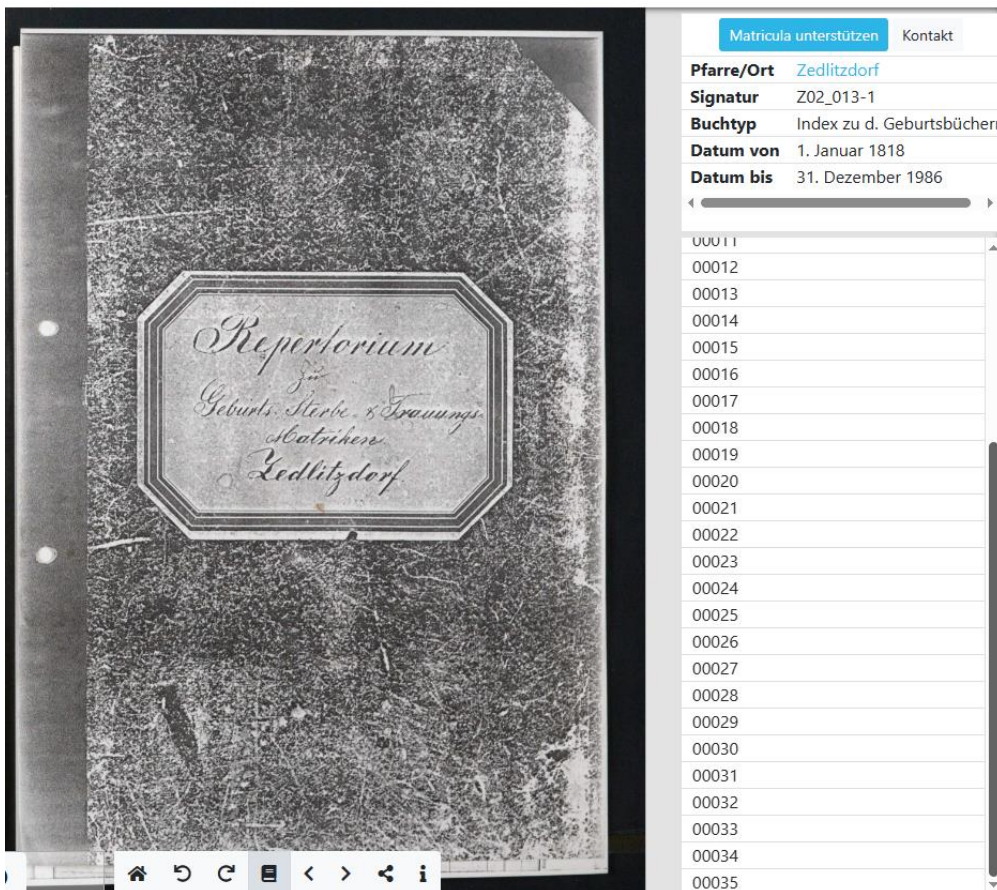 Repertorium
zu
Geburts- Sterbe- & Trauungs-
Matriken
Zedlitzdorf
Matricula unterstützen
Kontakt
Pfarre/Ort Zedlitzdorf
Signatur Z02_013-1
Buchtyp Index zu d. Geburtsbüchern
Datum von 1. Januar 1818
Datum bis 31. Dezember 1986
00011
00012
00013
00014
00015
00016
00017
00018
00019
00020
00021
00022
00023
00024
00025
00026
00027
00028
00029
00030
00031
00032
00033
00034
00035